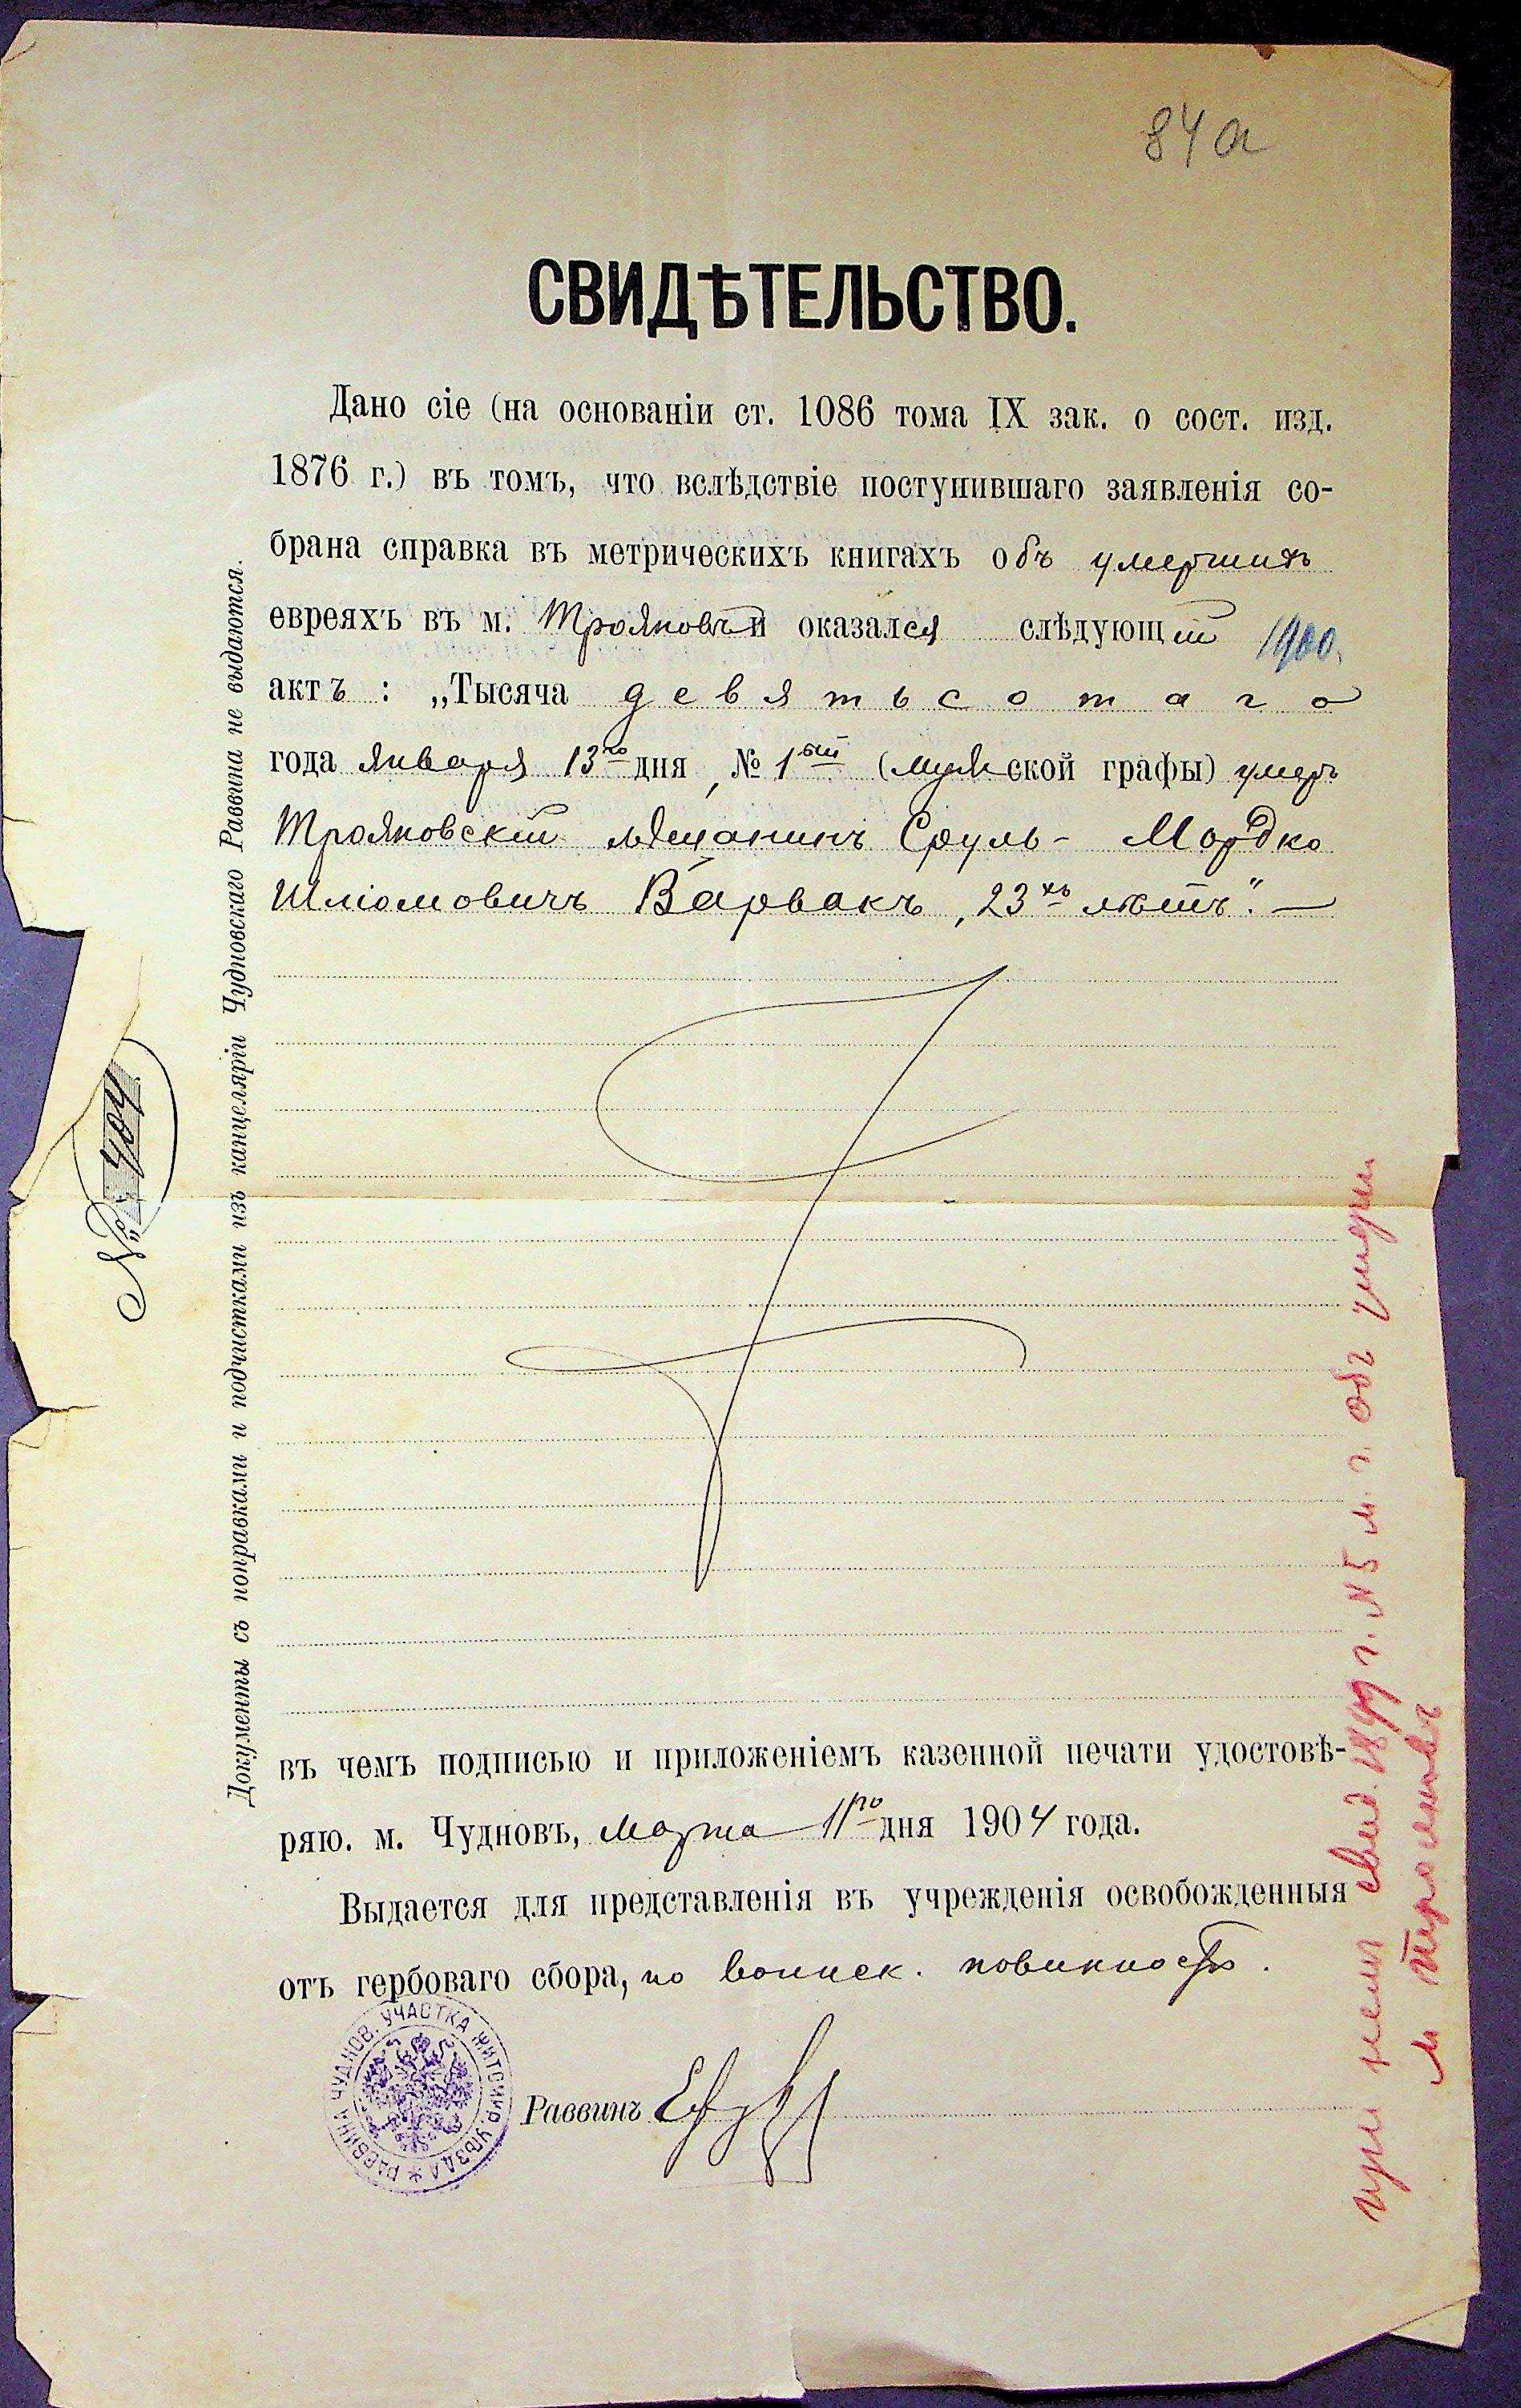 84а
СВИДѢТЕЛЬСТВО.
Дано сіе (на основаніи ст. 1086 тома IX зак. о сост. изд.
1876 г.) въ томъ, что вслѣдствіе поступившаго заявленія со-
брана справка въ метрическихъ книгахъ объ умершихъ
евреяхъ въ м. Трояновѣ и оказался слѣдующій 1900.
актъ : „Тысяча девятьсотаго
года января 13го дня, № 1ый (мужской графы) умеръ
Трояновскій мѣщанинъ Сруль - Мордко
Шліомовичъ Варвакъ, 23хъ лѣтъ". —
въ чемъ подписью и приложеніемъ казенной печати удостовѣ-
ряю. м. Чудновъ, Марта 11го дня 1904 года.
Выдается для представленія въ учрежденія освобожденныя
отъ гербоваго сбора, по воинск. повинности.
Раввинъ
РАВВИНА ЧУДНОВ. УЧАСТКА ЖИТОМИР. УѢЗДА
Документы съ поправками и подчистками изъ канцеляріи Чудновскаго Раввина не выдаются.
№ 404
при немъ свид. 1877 г. № 5 м. г. объ
м Трояновъ